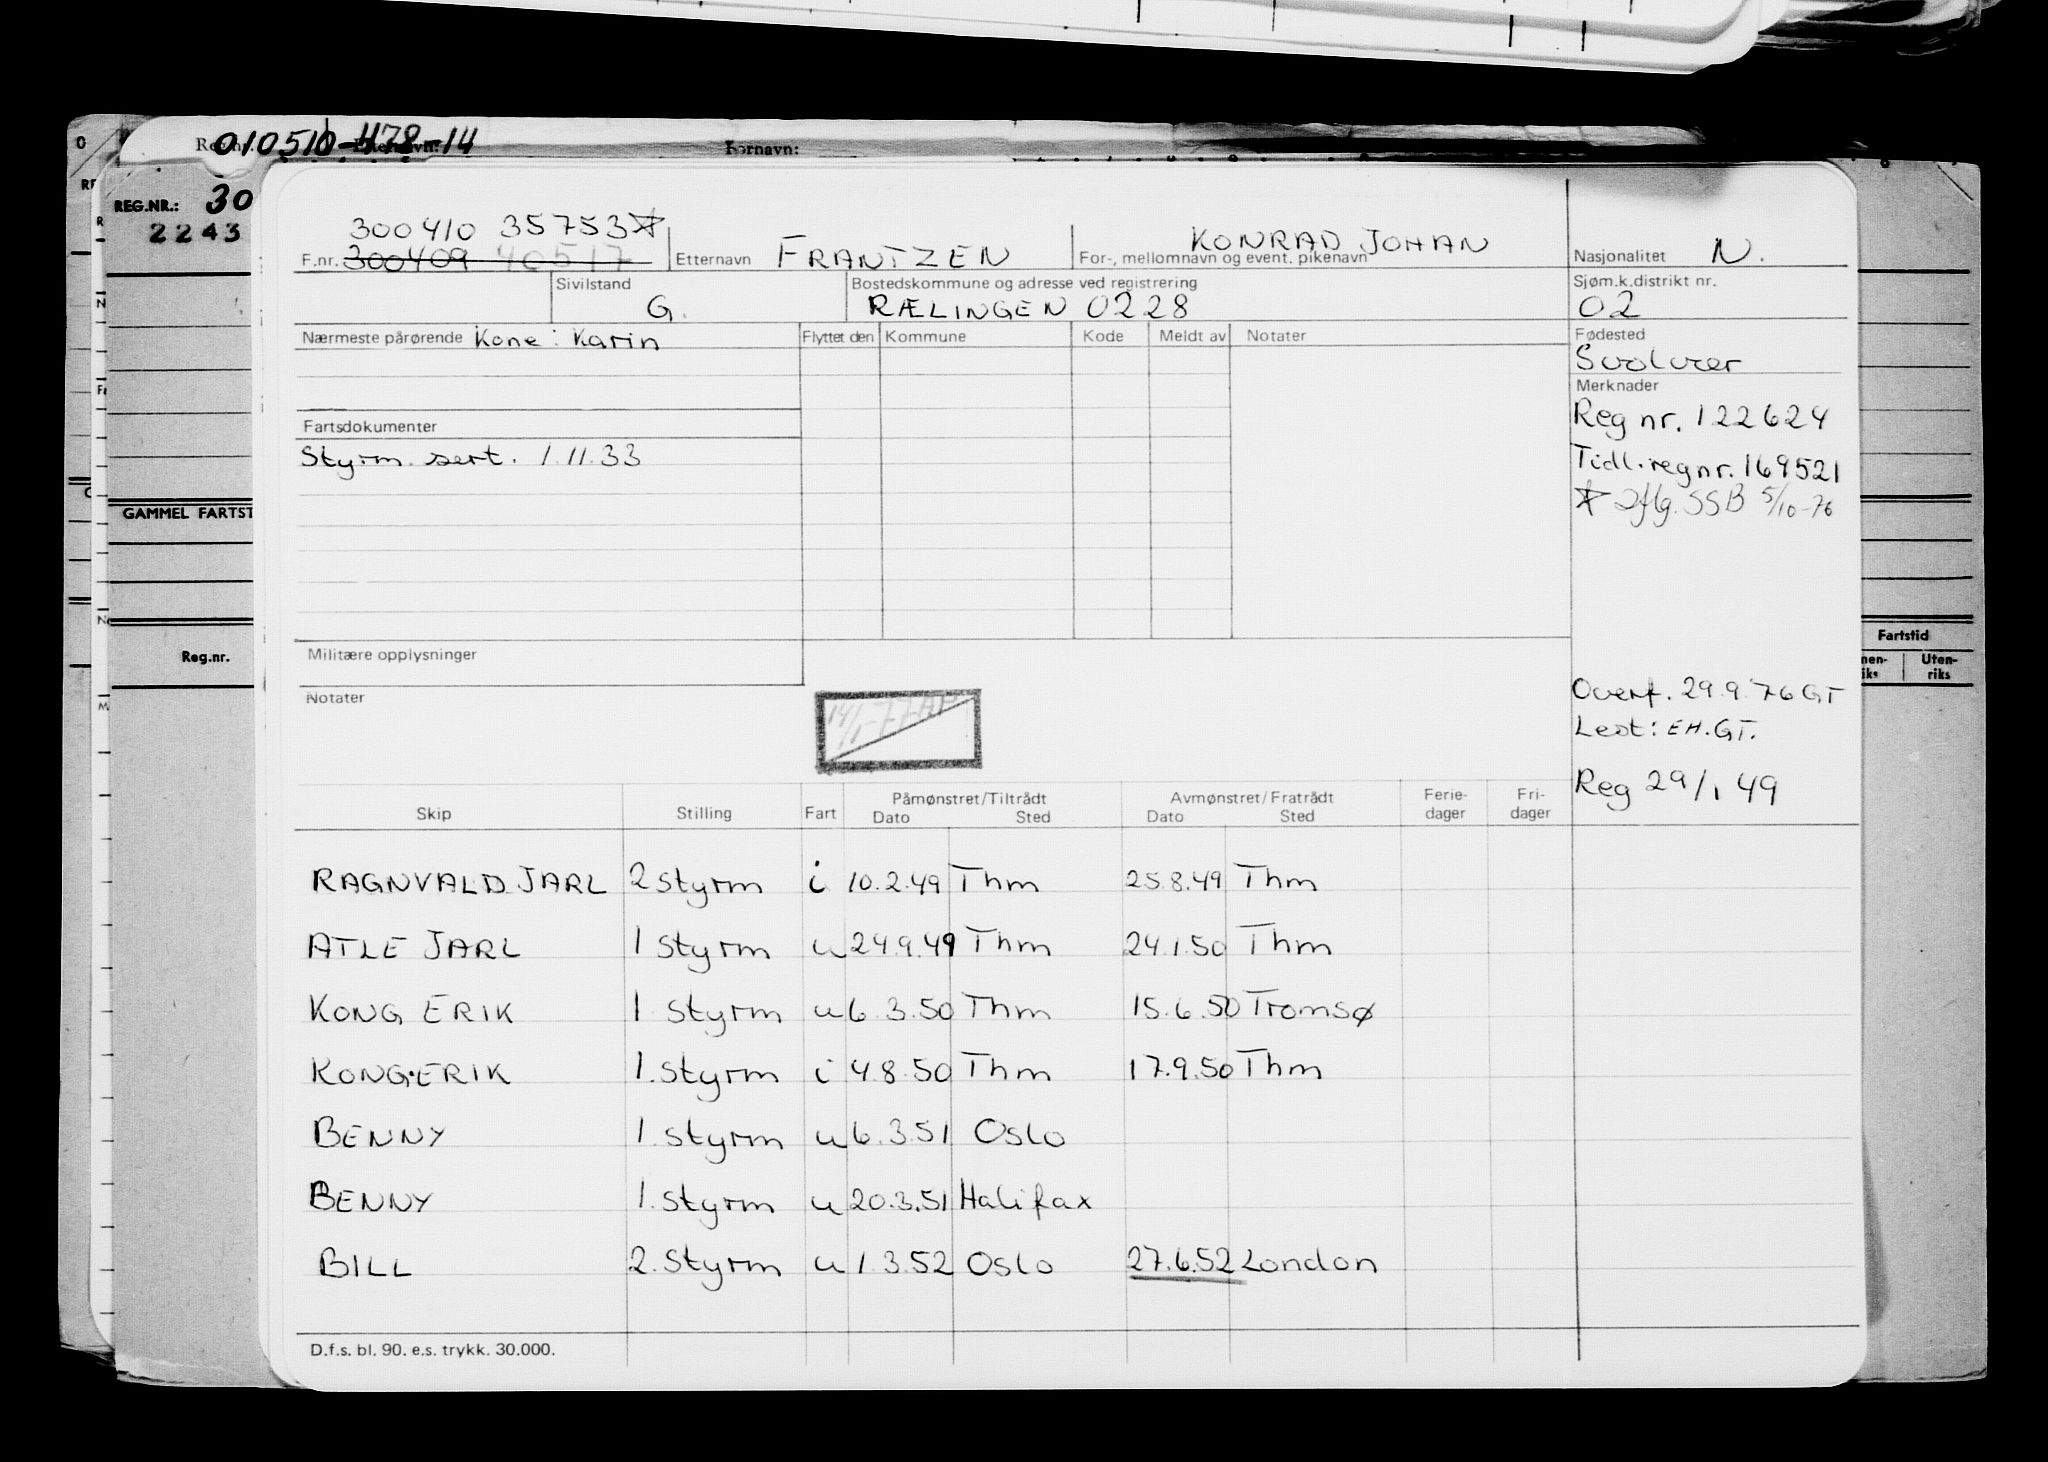 010510-478-14
Fornavn:
REG.NR.: 30
2243
GAMMEL FARTST
Reg.nr.
Fartstid
Uten-
riks
300410 35753 ☆
F.nr. 300409 40517 Etternavn FRANTZEN For-, mellomnavn og event. pikenavn KONRAD JOHAN Nasjonalitet N.
Sivilstand G. Bostedskommune og adresse ved registrering RÆLINGEN 0228 Sjøm.k.distrikt nr. 02
Nærmeste pårørende Kone: Karin Flyttet den Kommune Kode Meldt av Notater Fødested
Svolvær
Merknader
Reg nr. 122624
Fartsdokumenter
Styrm. sert. 1.11.33
Tidl. reg nr. 169521
☆ iflg. SSB 5/10-76
Militære opplysninger
Notater
Overf. 29.9.76 GT
Lest: EH.GT.
Reg 29/1 49
Skip Stilling Fart Påmønstret/Tiltrådt Dato Sted Avmønstret/Fratrådt Dato Sted Ferie-dager Fri-dager
RAGNVALD JARL 2 styrm i 10.2.49 Thm 25.8.49 Thm
ATLE JARL 1 styrm u 24.9.49 Thm 24.1.50 Thm
KONG ERIK 1 styrm u 6.3.50 Thm 15.6.50 Tromsø
KONG ERIK 1. styrm i 4.8.50 Thm 17.9.50 Thm
BENNY 1. styrm u 6.3.51 Oslo
BENNY 1. styrm u 20.3.51 Halifax
BILL 2. styrm u 1.3.52 Oslo 27.6.52 London
D.f.s. bl. 90. e.s. trykk. 30.000.